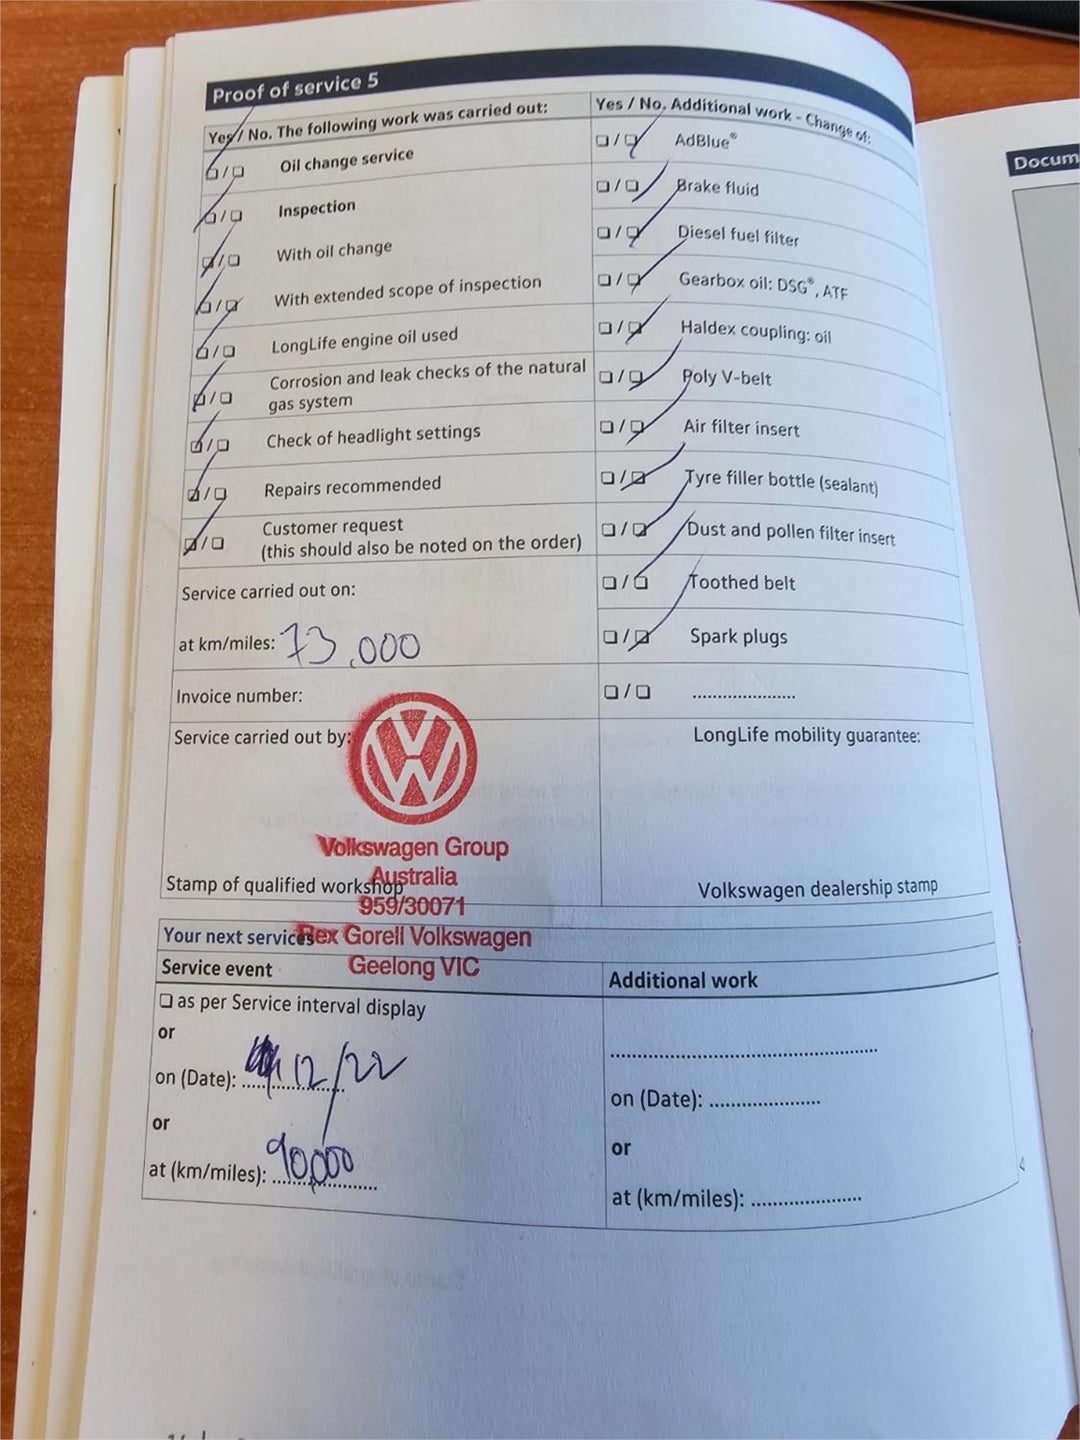 Proof of service 5
Yes / No. The following work was carried out:
❏ / ❏ Oil change service
❏ / ❏ Inspection
❏ / ❏ With oil change
❏ / ❏ With extended scope of inspection
❏ / ❏ LongLife engine oil used
❏ / ❏ Corrosion and leak checks of the natural
gas system
❏ / ❏ Check of headlight settings
❏ / ❏ Repairs recommended
❏ / ❏ Customer request
(this should also be noted on the order)
Service carried out on:
at km/miles: 73,000
Invoice number:
Service carried out by:
Volkswagen Group
Australia
Stamp of qualified workshop
959/30071
Rex Gorell Volkswagen
Geelong VIC
Yes / No. Additional work - Change of:
❏ / ❏ AdBlue®
❏ / ❏ Brake fluid
❏ / ❏ Diesel fuel filter
❏ / ❏ Gearbox oil: DSG®, ATF
❏ / ❏ Haldex coupling: oil
❏ / ❏ Poly V-belt
❏ / ❏ Air filter insert
❏ / ❏ Tyre filler bottle (sealant)
❏ / ❏ Dust and pollen filter insert
❏ / ❏ Toothed belt
❏ / ❏ Spark plugs
❏ / ❏ ......................
LongLife mobility guarantee:
Volkswagen dealership stamp
Your next services
Service event
❏ as per Service interval display
or
on (Date): 12/22
or
at (km/miles): 90,000
Additional work
on (Date): ......................
or
at (km/miles): ......................
Docum